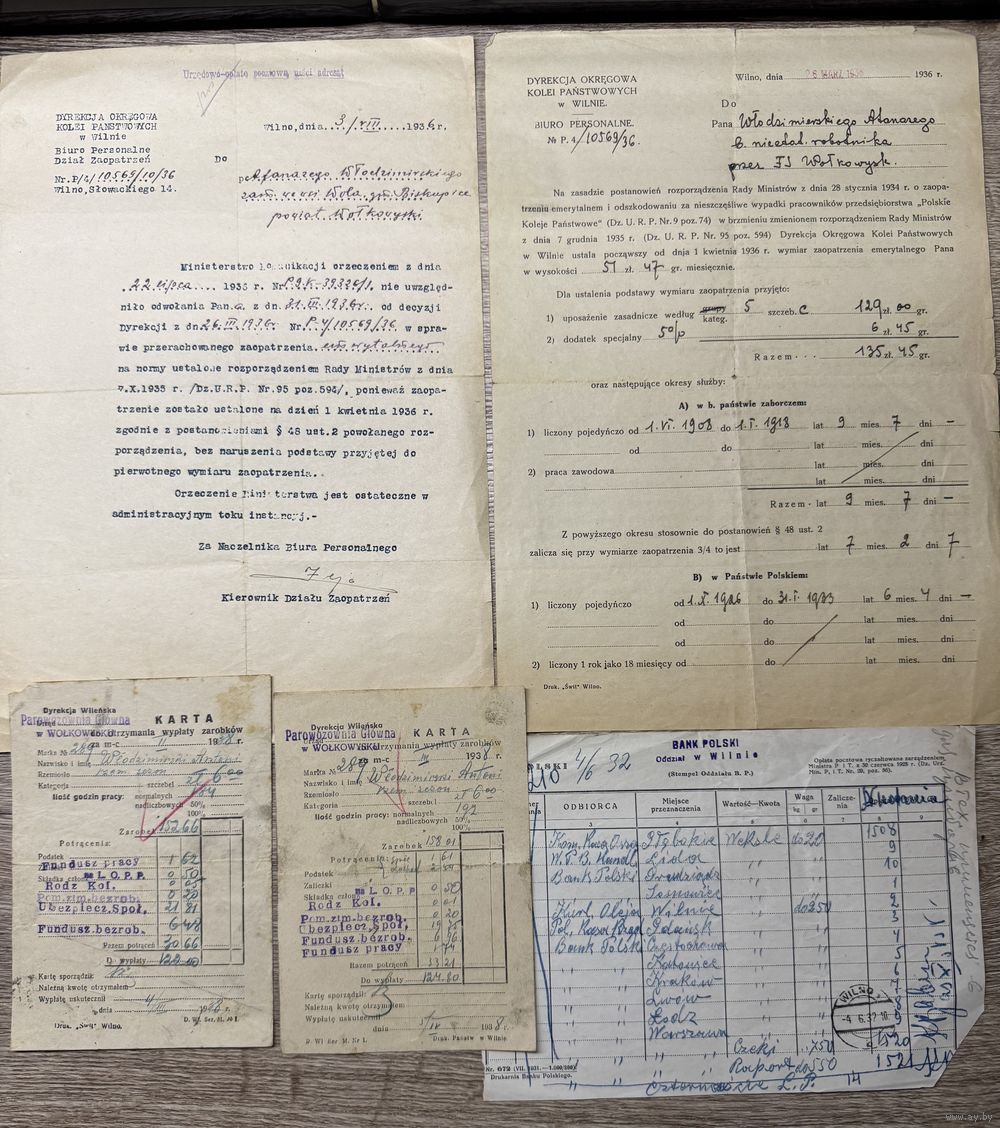 Urzędowo-opłato pocztową uiści adresat
DYREKCJA OKRĘGOWA
KOLEI PAŃSTWOWYCH
w Wilnie
Biuro Personalne
Dział Zaopatrzeń
Nr.P/4/10569/10/36
Wilno, Słowackiego 14.
Wilno, dnia 3/VIII 1936r.
Do
p. Atanazego Włodzimirskiego
zam. we wsi Wola, gm. Biskupice
powiat Wołkowyski
Ministerstwo Komunikacji orzeczeniem z dnia
22 lipca 1936 r. nie uwzględ-
niło odwołania Pana z dn. 31.III.1936r. od decyzji
Dyrekcji z dn. 26.III.1936r. Nr. P.4/10569/36 w spra-
wie przerachowanego zaopatrzenia emerytalnego
na normy ustalone rozporządzeniem Rady Ministrów z dnia
7.X.1935 r. /Dz.U.R.P. Nr.95 poz.594/, ponieważ zaopa-
trzenie zostało ustalone na dzień 1 kwietnia 1936 r.
zgodnie z postanowieniami § 48 ust.2 powołanego roz-
porządzenia, bez naruszenia podstawy przyjętej do
pierwotnego wymiaru zaopatrzenia.
Orzeczenie Ministerstwa jest ostateczne w
administracyjnym toku instancyj.-
Za Naczelnika Biura Personalnego
Kierownik Działu Zaopatrzeń
DYREKCJA OKRĘGOWA
KOLEI PAŃSTWOWYCH
w WILNIE.
BIURO PERSONALNE.
№ P. 4/10569/36.
Wilno, dnia 26 MARZ 1936 1936 r.
Do
Pana Włodzimierskiego Atanazego
b. nieetat. robotnika
przez Wołkowysk.
Na zasadzie postanowień rozporządzenia Rady Ministrów z dnia 28 stycznia 1934 r. o zaopa-
trzeniu emerytalnem i odszkodowaniu za nieszczęśliwe wypadki pracowników przedsiębiorstwa „Polskie
Koleje Państwowe" (Dz. U. R. P. Nr. 9 poz. 74) w brzmieniu zmienionem rozporządzeniem Rady Ministrów
z dnia 7 grudnia 1935 r. (Dz. U. R. P. Nr. 95 poz. 594) Dyrekcja Okręgowa Kolei Państwowych
w Wilnie ustala począwszy od dnia 1 kwietnia 1936 r. wymiar zaopatrzenia emerytalnego Pana
w wysokości 51 zł. 47 gr. miesięcznie.
Dla ustalenia podstawy wymiaru zaopatrzenia przyjęto:
1) uposażenie zasadnicze według grupy kateg. 5 szczeb. c 129 zł. 00 gr.
2) dodatek specjalny 5% 6 zł. 45 gr.
Razem 135 zł. 45 gr.
oraz następujące okresy służby:
A) w b. państwie zaborczem:
1) liczony pojedyńczo od 1.VI.1908 do 1.I.1918 lat 9 mies. 7 dni —
od do lat mies. dni
2) praca zawodowa lat mies. dni
lat mies. dni
Razem lat 9 mies. 7 dni —
Z powyższego okresu stosownie do postanowień § 48 ust. 2
zalicza się przy wymiarze zaopatrzenia 3/4 to jest lat 7 mies. 2 dni 7
B) w Państwie Polskiem:
1) liczony pojedyńczo od 1.X.1926 do 31.I.1933 lat 6 mies. 4 dni —
od do lat mies. dni
od do lat mies. dni
2) liczony 1 rok jako 18 miesięcy od do lat mies. dni
Druk. „Świt" Wilno.
Dyrekcja Wileńska
Parowozownia Główna
w WOŁKOWYSKU
KARTA
do otrzymania wypłaty zarobków
za m-c II 1938 r.
Marka № 289
Nazwisko i imię Włodzimirski Antoni
Rzemiosło rzem. sezon
Kategoria szczebel 6 00
Ilość godzin pracy: normalnych 184
nadliczbowych 50%
100%
Zarobek 152 66
Potrącenia:
Podatek 1 62
Fundusz pracy
L.O.P.P. 0 50
Rodz Kol. 0 05
Pom. zim. bezrob. 0 20
Ubezpiecz. Społ. 21 81
Fundusz. bezrob. 6 48
Razem potrąceń 30 66
Do wypłaty 122 00
Kartę sporządził:
Należną kwotę otrzymałem
Wypłatę uskutecznił
dnia 4/III 1938 r.
D. Wl. Ser. M. № 1.
Druk. „Świt" Wilno.
Dyrekcja Wileńska
Parowozownia Główna
w WOŁKOWYSKU
KARTA
otrzymania wypłaty zarobków
za m-c III 1938 r.
Marka № 289
Nazwisko i imię Włodzimirski Antoni
Rzemiosło rzem. sezon
Kategoria szczebel 6 00
Ilość godzin pracy: normalnych 192
nadliczbowych 50%
100%
Zarobek 158 01
Potrącenia: 1 61
Podatek
Zaliczki
L.O.P.P. 0 50
Rodz Kol. 0 01
Pom. zim. bezrob. 0 20
Ubezpiecz. Społ.
Fundusz. bezrob.
Fundusz pracy
Razem potrąceń 33 21
Do wypłaty 124.80
Kartę sporządził:
Należną kwotę otrzymałem
Wypłatę uskutecznił
dnia /IV 1938 r.
D. Wl Ser. M. Nr 1.
Druk. Państw w Wilnie
BANK POLSKI
Oddział w Wilnie
(Stempel Oddziału B. P.)
4/6 32
Opłata pocztowa ryczałtowana zarządzeniem
Ministra P i T. z 30 czerwca 1925 r. (Dz. Urz.
Min. P. i T. Nr. 20, poz. 36).
ODBIORCA
Miejsce przeznaczenia
Wartość—Kwota
Waga
kg gr
Zalicze-
nia
3 4 5 6 7 8 9
Głębokie Weksle do 20 1508
Lida " 9
Bank Polski Grudziądz " 10
" Sosnowiec " 1
Wilnie do 250 2
Gdańsk " 3
Bank Polski Częstochowa " 4
" Katowice "
" Kraków "
" Lwów "
" Łódź "
" Warszawa "
" " Czeki 750 1520
" " Raport do 550 1521
WILNO
4 6.32.10
Nr. 672 (VII. 1931.—1.000/100)
Drukarnia Banku Polskiego.
czternaście L. P. 14
www.ay.by